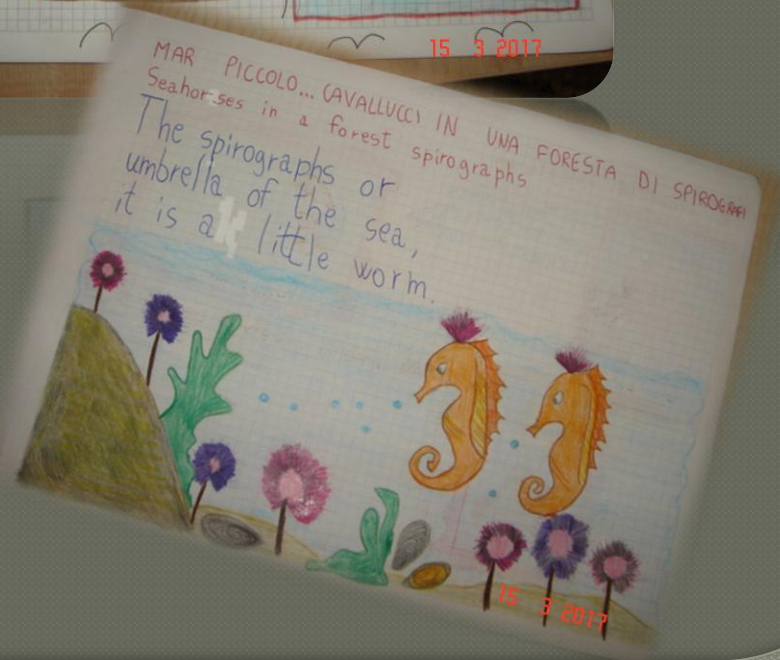 15 3 2017
MAR PICCOLO... CAVALLUCCI IN UNA FORESTA DI SPIROGRAFI
Seahorses in a forest spirographs
The spirographs or
umbrella of the sea,
it is a little worm.
15 3 2017